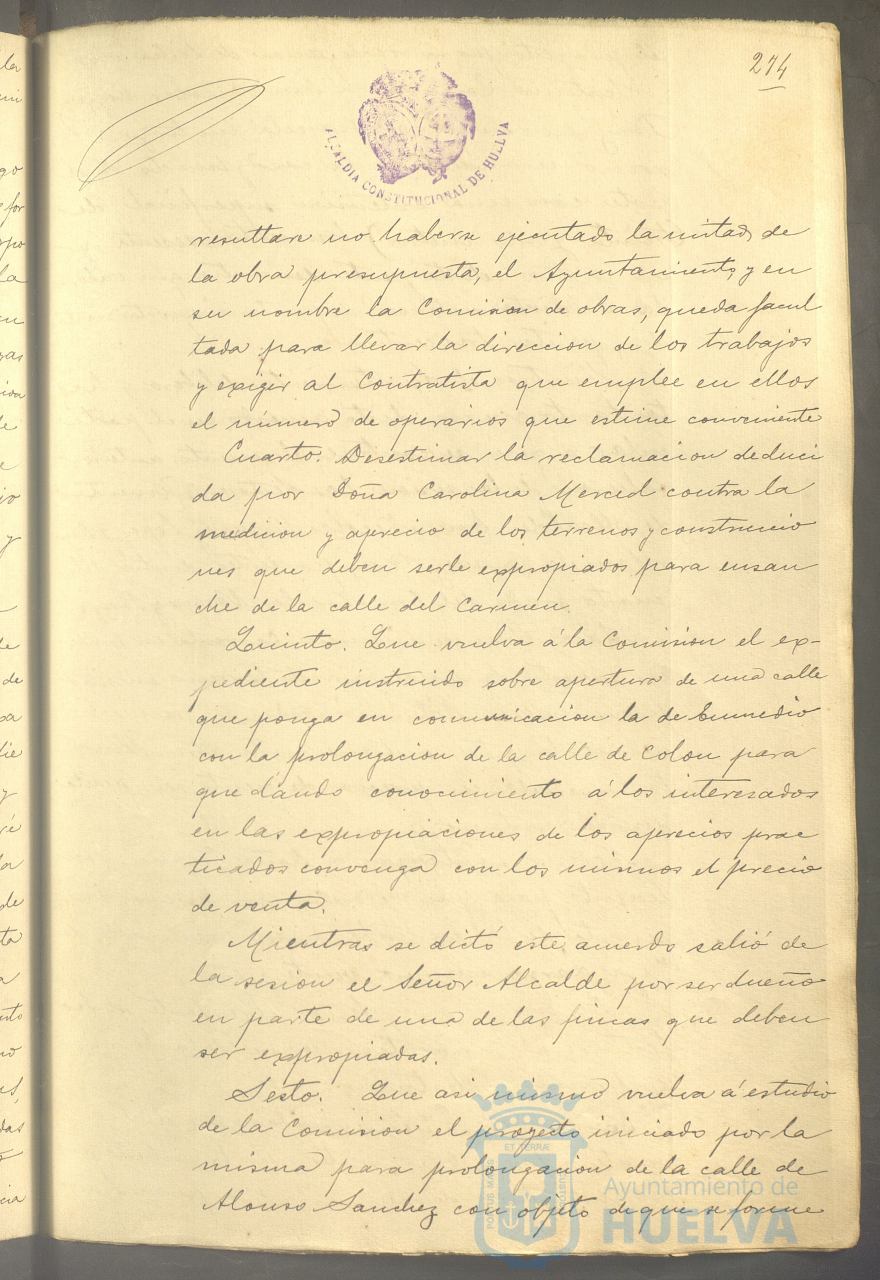 274
ALCALDIA CONSTITUCIONAL DE HUELVA
resultare no haberse ejecutado la mitad de
la obra presupuesta, el Ayuntamiento, y en
su nombre la Comision de obras, queda facul
tada para llevar la direccion de los trabajos
y exigir al Contratista que emplee en ellos
el número de operarios que estime conveniente
Cuarto. Desestimar la reclamacion deduci
da por Doña Carolina Merced contra la
medicion y aprecio de los terrenos y construccio
nes que deben serle expropiados para ensan
che de la calle del Carmen.
Quinto. Que vuelva á la Comision el ex-
pediente instruido sobre apertura de una calle
que ponga en comunicacion la de Enmedio
con la prolongacion de la calle de Colon para
que dando conocimiento á los interesados
en las expropiaciones de los aprecios prac
ticados convenga con los mismos el precio
de venta.
Mientras se dictó este acuerdo salió de
la sesion el Señor Alcalde por ser dueño
en parte de una de las fincas que deben
ser expropiadas.
Sesto. Que asi mismo vuelva á estudio
de la Comision el proyecto iniciado por la
misma para prolongacion de la calle de
Alonso Sanchez con objeto de que se forme
Ayuntamiento de
HUELVA